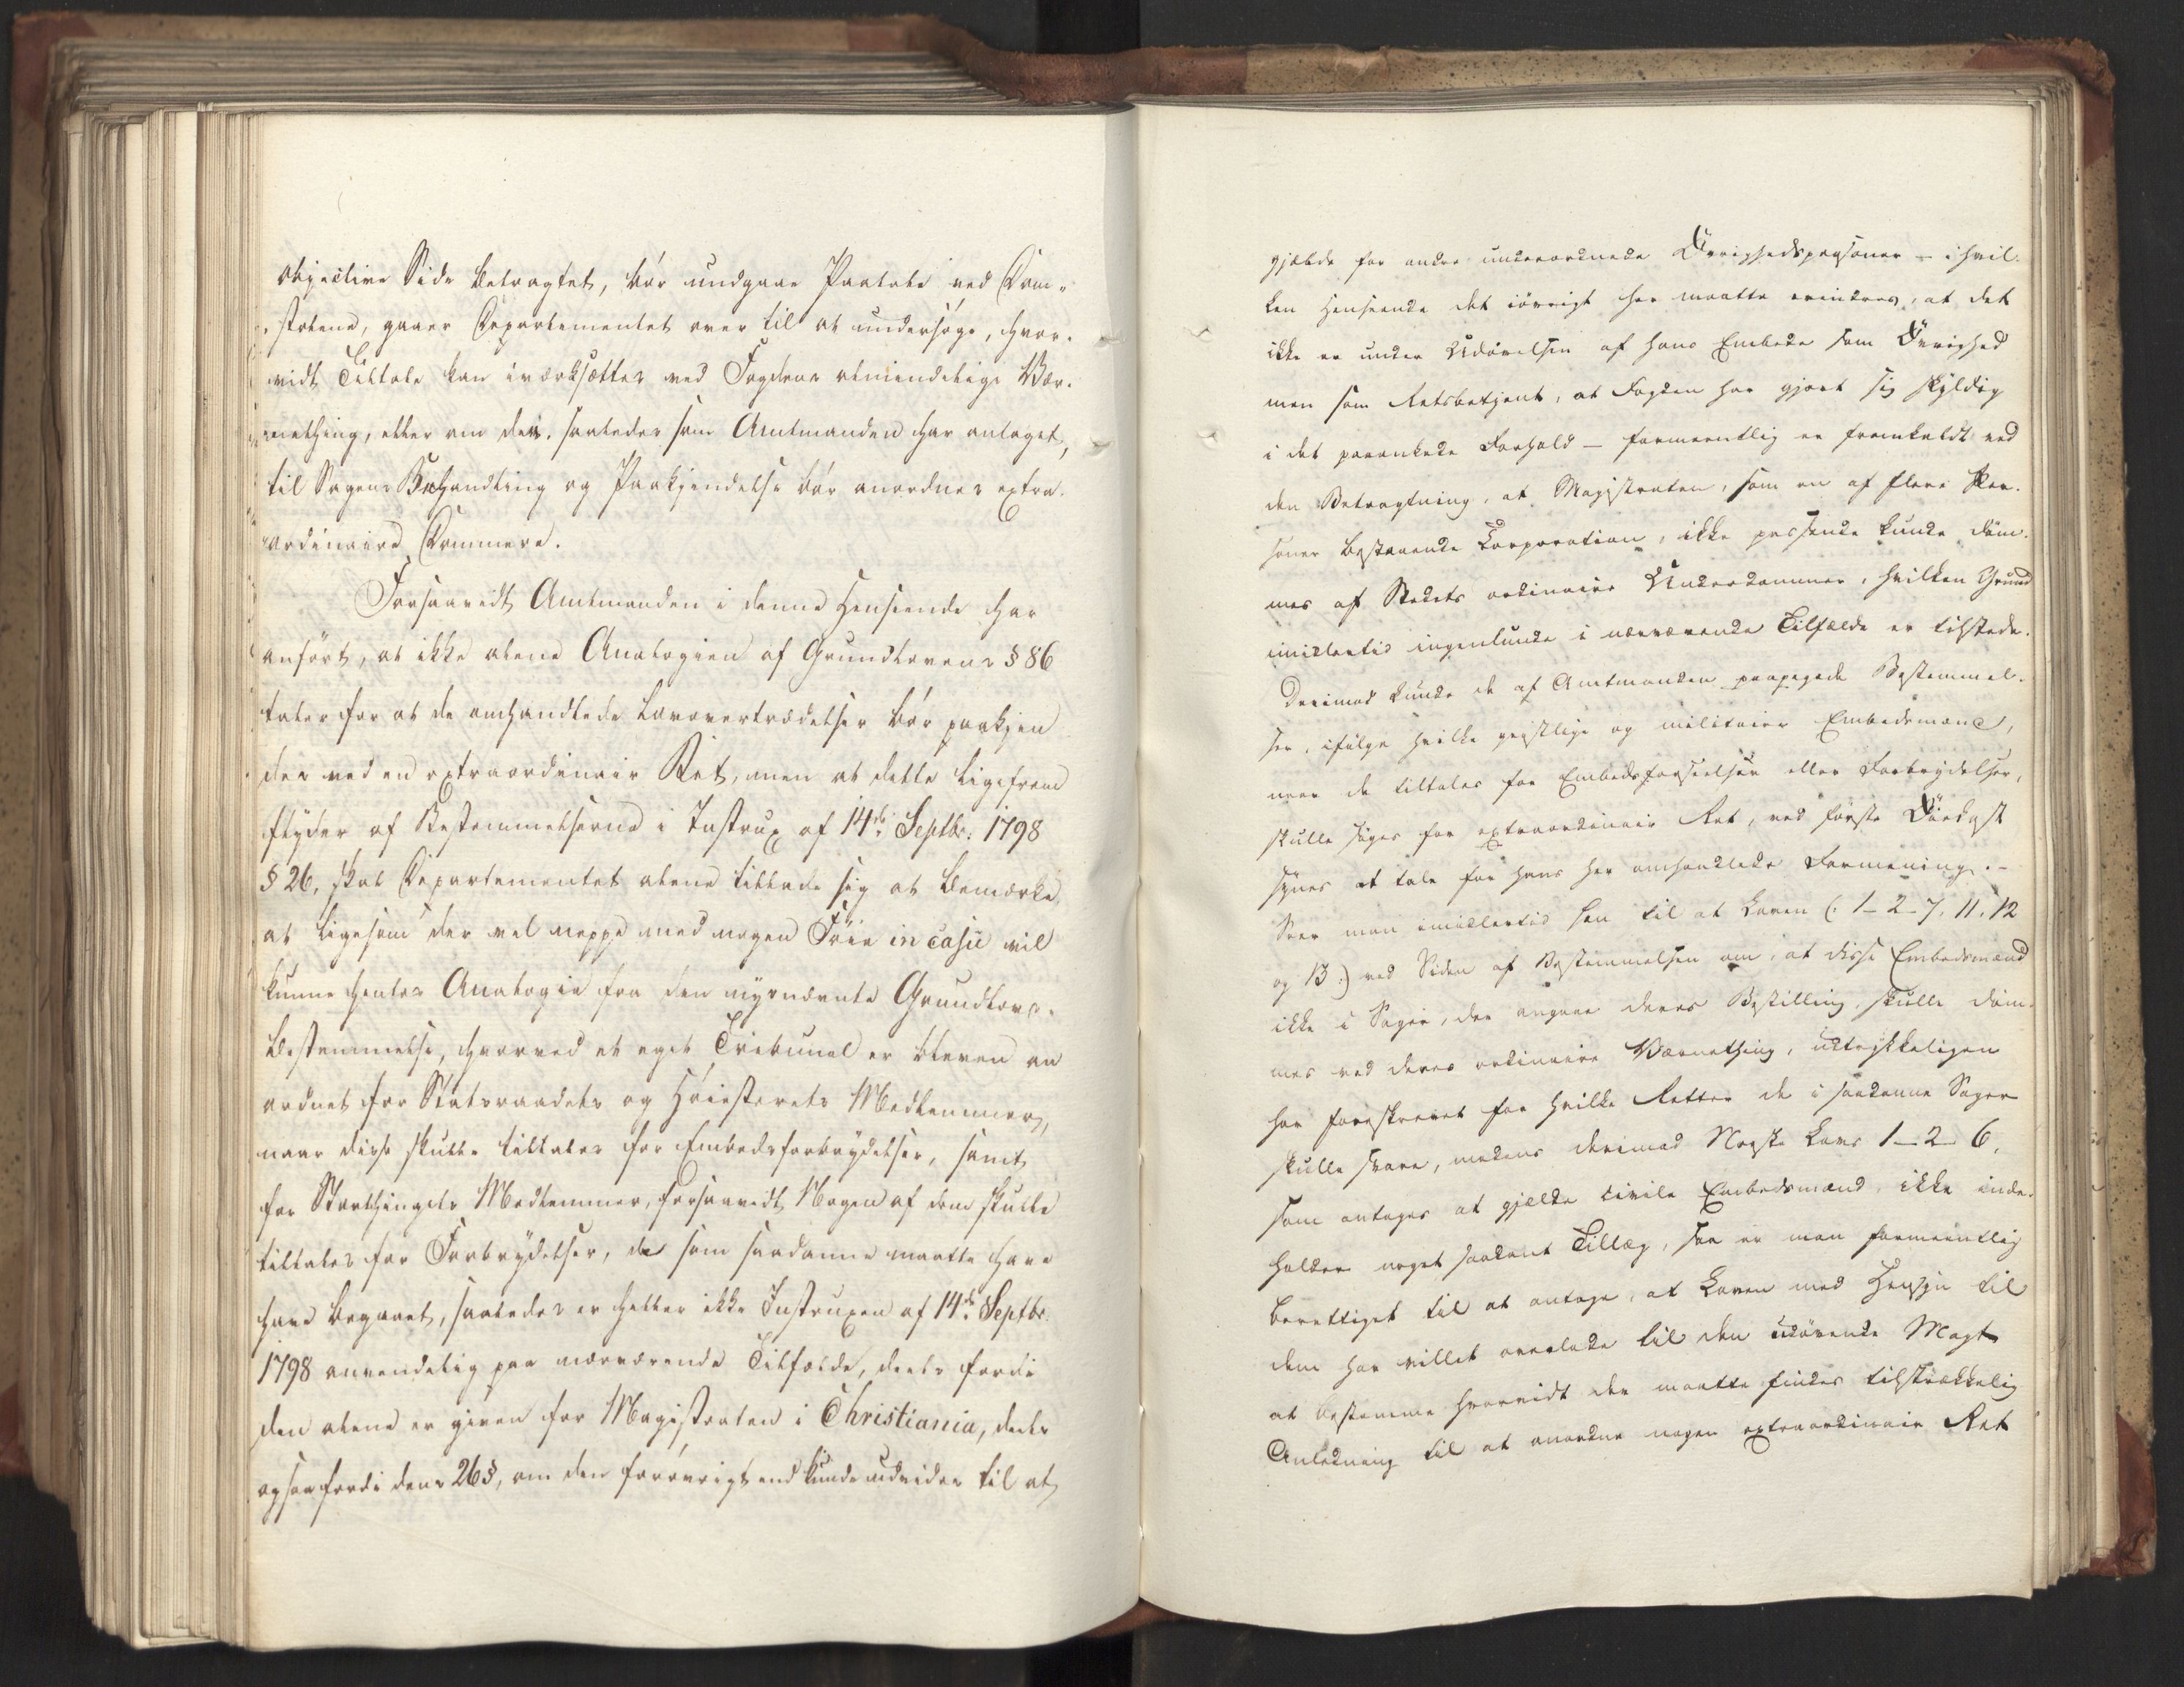 objective Side betragtet, bør undgaae Paatale ved Dom-
stolene, gaaer Departementet over til at undersøge, hvor-
vidt Tiltale kan iværksættes ved Fogdens almindelige Vær-
nething, eller om der, saaledes som Amtmanden har antaget,
til Sagens Behandling og Paakjendelse bør anordnes extra-
ordinaire Dommere.
Forsaavidt Amtmanden i denne Henseende har
anført, at ikke alene Analogien af Grundlovens § 86
taler for at de omhandlede Lovovertrædelser bør paakjen
des ved en extraordinair Ret, men at dette ligefrem
flyder af Bestemmelserne i Instrux af 14de Septbr: 1798
§ 26, skal Departementet alene tillade sig at bemærke,
at ligesom der vel neppe med nogen Føie in casu vil
kunne hentes Analogie fra den nysnævnte Grundlovs-
bestemmelse, hvorved et eget Tribunal er bleven an
ordnet for Statsraadets og Høiesterets Medlemmer,
naar disse skulle tiltales for Embedsforbrydelser, samt
for Storthingets Medlemmer, forsaavidt Nogen af dem skulle
tiltales for Forbrydelser, de som saadanne maatte have
have begaaet, saaledes er heller ikke Instruxen af 14de Septbr.
1798 anvendelig paa nærværende Tilfælde, deels fordi
den alene er given for Magistraten i Christiania, deels
ogsaa fordi dens 26 §, om den forøvrigt end kunde udvides til at
gjælde for andre underordnede Øvrighedspersoner – i hvil-
ken Henseende det iøvrigt her maatte erindres, at det
ikke er under Udøvelsen af hans Embede som Øvrighed
men som Retsbetjent, at Fogden har gjort sig skyldig
i det paaankede Forhold – formeentlig er fremkaldt ved
den Betragtning, at Magistraten, som en af flere Per-
soner bestaaende Corporation, ikke passende kunde døm-
mes af Stedets ordinaire Underdommer, hvilken Grund
imidlertid ingenlunde i nærværende Tilfælde er tilstede.
Derimod kunde de af Amtmanden paapegede Bestemmel-
ser, ifølge hvilke geistlige og militaire Embedsmænd,
naar de tiltales for Embedsforseelser eller Forbrydelser,
skulle søges for extraordinair Ret, ved første Øiekast
synes at tale for hans her omhandlede Formening. –
Seer man imidlertid hen til at Loven (: 1–2–7, 11, 12
og 13 :) ved Siden af Bestemmelsen om, at disse Embedsmænd
ikke i Sager, der angaae deres Bestilling, skulle døm-
mes ved deres ordinaire Værnething, udtrykkeligen
har foreskrevet for hvilke Retter de i saadanne Sager
skulle svare, medens derimod Norske Lovs 1–2–6,
som antages at gjælde civile Embedsmænd, ikke inde-
holder noget saadant Tillæg, saa er man formeentlig
berettiget til at antage, at Loven med Hensyn til
dem har villet overlade til den udøvende Magt
at bestemme hvorvidt der maatte findes tilstrækkelig
Anledning til at anordne nogen extraordinair Ret